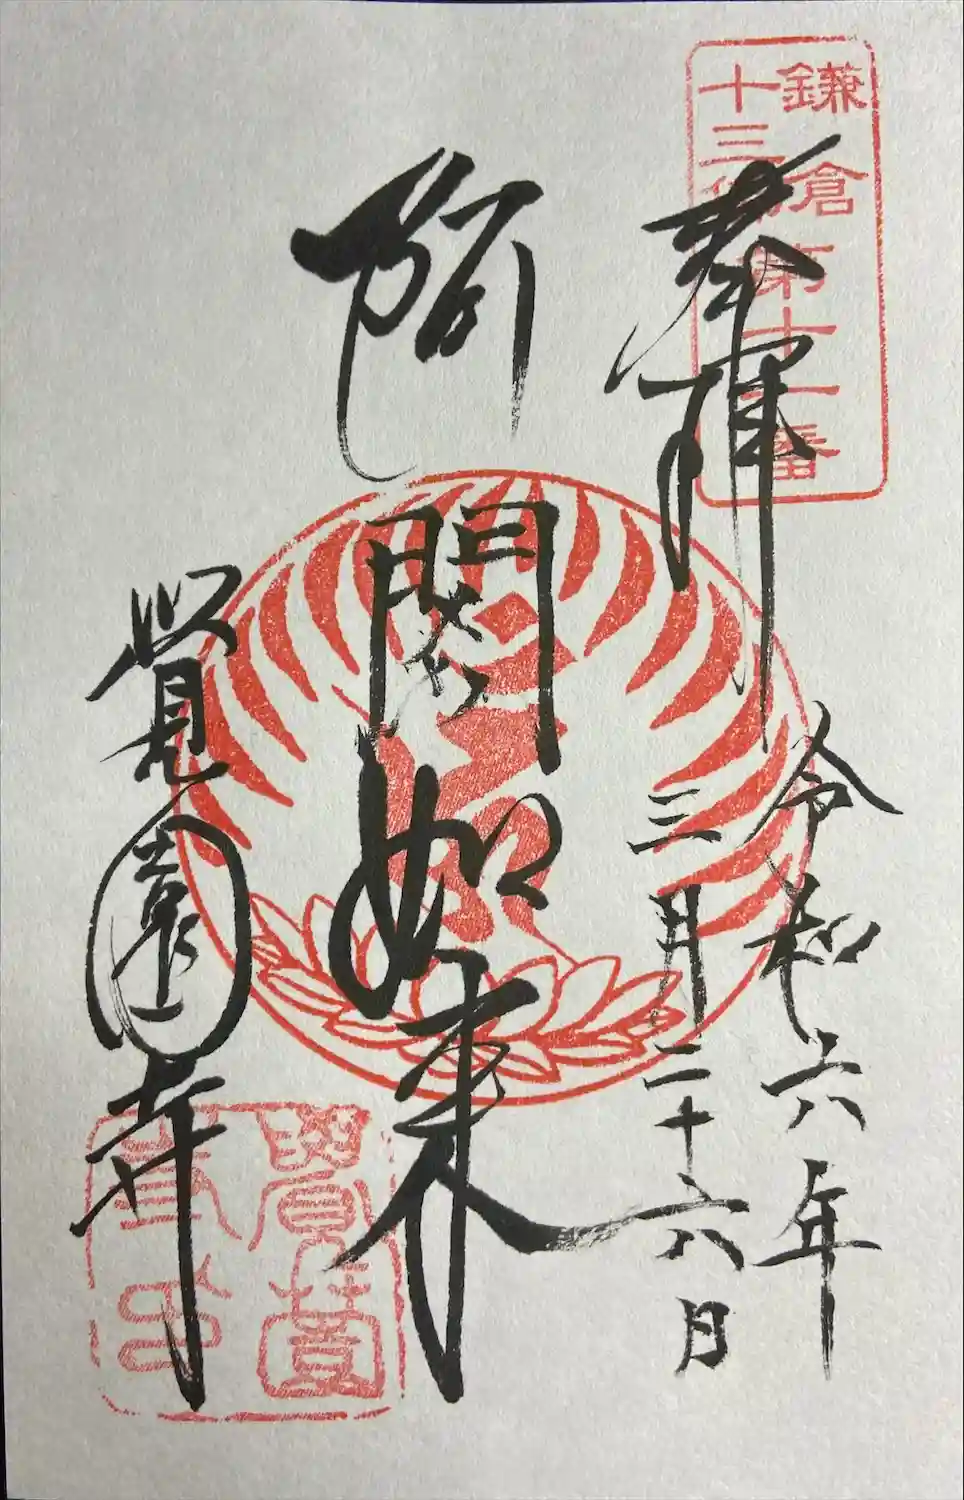 鎌倉
十三佛第十一番
奉拝
令和六年
三月二十六日
阿閦如来
覺園寺
覺園寺印